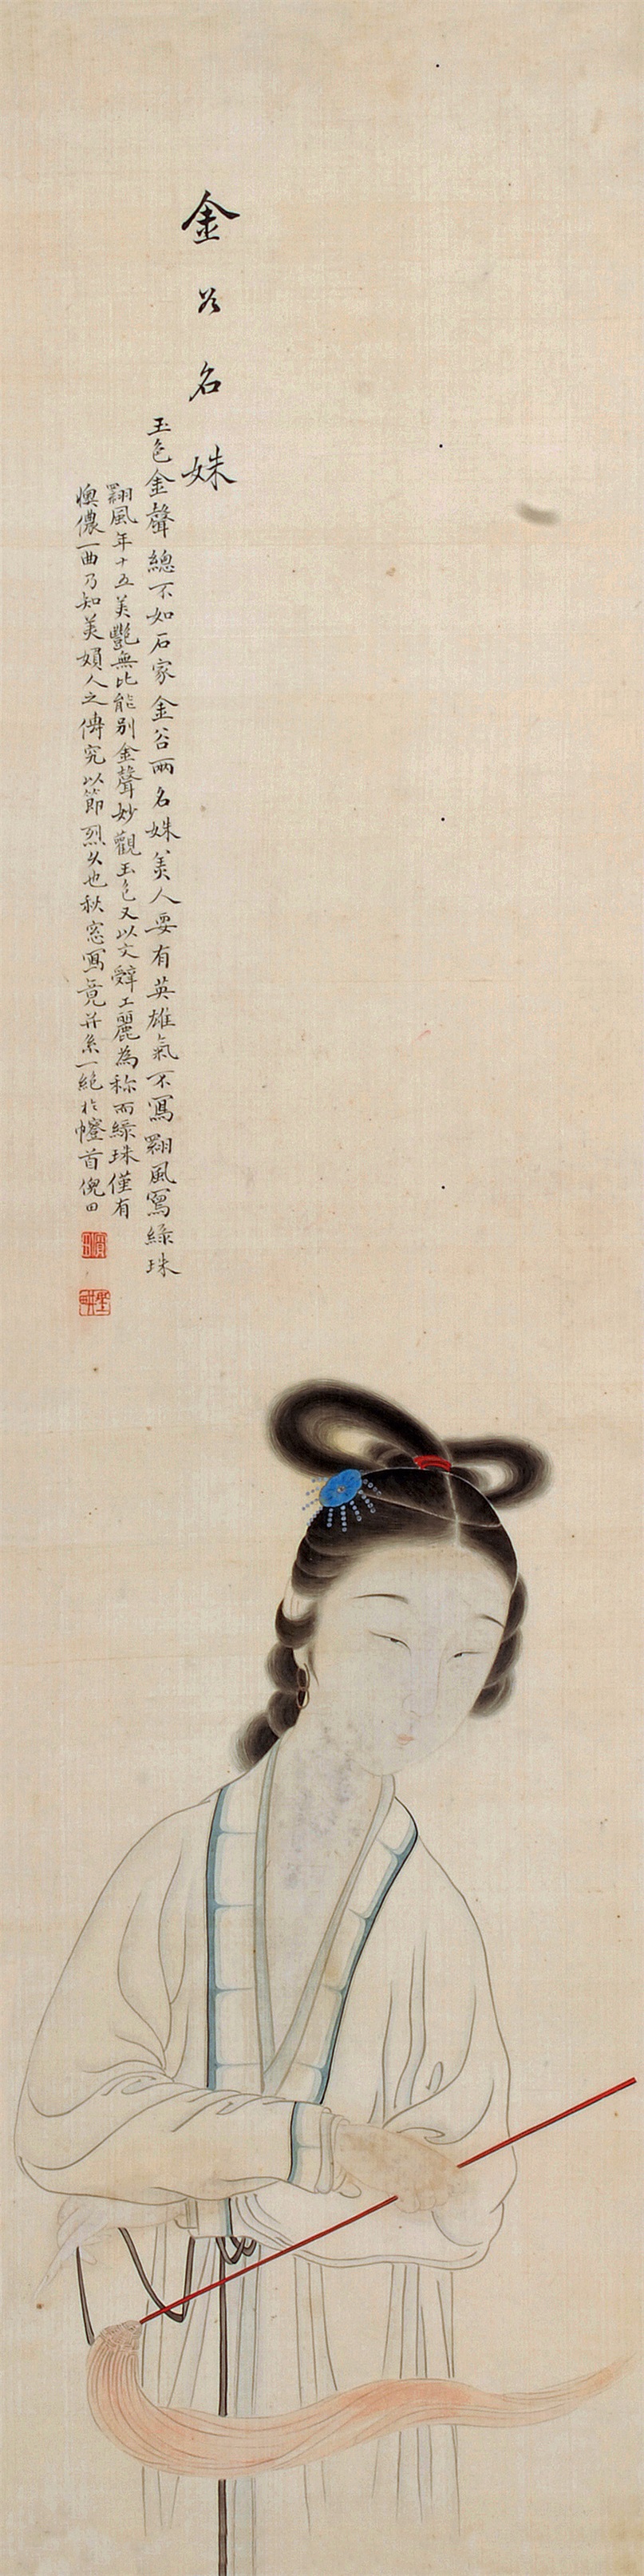 金谷名姝
玉色金聲總不如石家金谷兩名姝美人要有英雄氣不寫翾風寫綠珠
翾風年十五美艷無比能別金聲妙觀玉色又以文辭工麗為称而綠珠僅有
懊儂一曲乃知美人之傳究以節烈久也秋窓寫竟并系一絕於幢首倪田